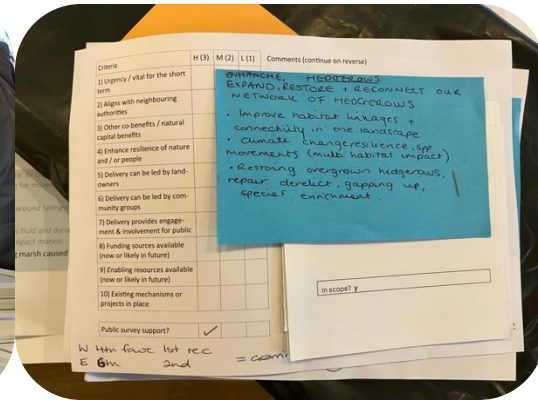 Criteria
H (3) M (2) L (1) Comments (continue on reverse)
1) Urgency / vital for the short
term
2) Aligns with neighbouring
authorities
3) Other co-benefits / natural
capital benefits
4) Enhance resilience of nature
and / or people
5) Delivery can be led by land-
owners
6) Delivery can be led by com-
munity groups
7) Delivery provides engage-
ment & involvement for public
8) Funding sources available
(now or likely in future)
9) Enabling resources available
(now or likely in future)
10) Existing mechanisms or
projects in place
Public survey support? ✓
W 4th 1st rec
E 6th 2nd
HEDGEROWS
EXPAND, RESTORE + RECONNECT OUR
NETWORK OF HEDGEROWS
• Improve habitat linkages +
connectivity in the landscape
• Climate change resilience, spp
movements (multi habitat impact)
• Restoring overgrown hedgerows,
repair derelict, gapping up,
species enrichment.
In scope? y
marsh caused